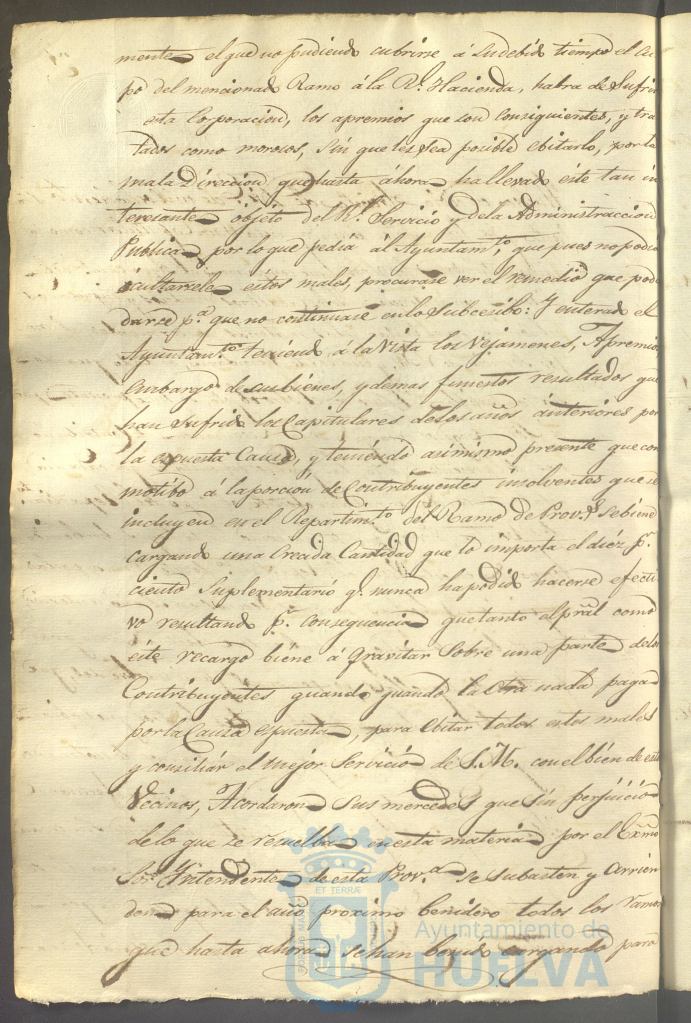 mente el que no pudiendo cubrirse á su debido tiempo el cu
po del mencionado Ramo á la Rl. Hacienda, habra de sufrir
esta Corporacion, los apremios que son consiguientes, y tra
tados como morosos, sin que les sea posible ebitarlo, por la
mala direccion que hasta áhora ha llevado este tan in
teresante objeto del Rl. Servicio y de la Administraccion
Publica, por lo que pedia ál Ayuntamto. que pues no podia
ocultarsele estos males, procurase ver el remedio que pode
darse pa. que no continuase en lo subcesibo: Y enterado el
Ayuntamto. teniendo á la vista los vejamenes, Apremios
embargo de sus bienes, y demas funestos resultados que
han sufrido los Capitulares de los años ánteriores por
la espuesta Causa, y teniendo asimismo presente que con
motibo á la porcion de Contribuyentes insolventes que se
incluyen en el Repartimto. del Ramo de Provs. se biene
cargando una crecida Cantidad que lo importa el diez pr.
ciento suplementario q. nunca ha podido hacerse efecti
vo resultando pr. consequencia que tanto el pral como
este recargo biene á gravitar sobre una parte de los
Contribuyentes quando quando la otra nada paga
por la Causa espuesta, para ebitar todos estos males
y conziliár el mejor servicio de S.M. con el bien de este
Vecinos, Acordaron sus mercedes que sin perjuicio
de lo que se resuelba en esta materia por el Exmo
Sor. Yntendente de esta Prova. se subasten y arrien
den para el año proximo benidero todos los ramos
que hasta ahora se han benido cargando para
ET TERRÆ
Ayuntamiento de
HUELVA